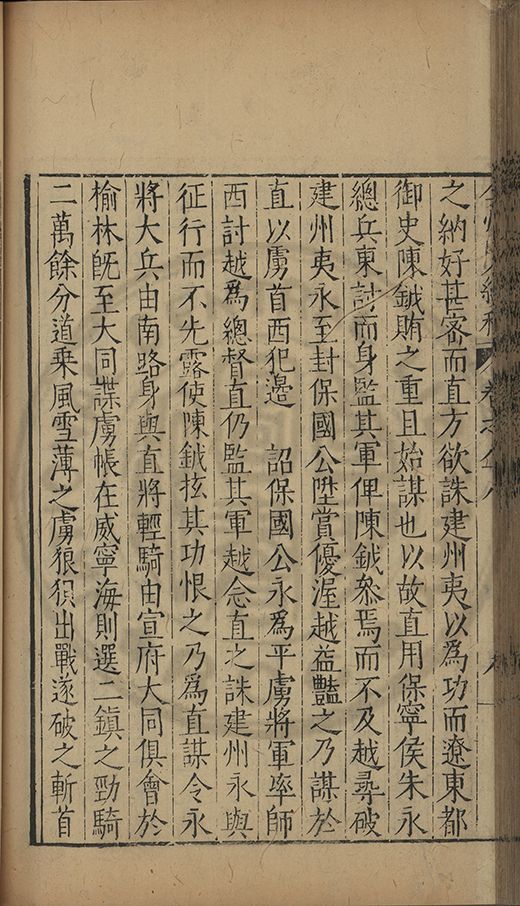 之納好甚密而直方欲誅建州夷以爲功而遼東都
御史陳鉞賂之重且始謀也以故直用保寧侯朱永
總兵東討而身監其軍俾陳鉞叅焉而不及越尋破
建州夷永至封保國公陞賞優渥越益豔之乃謀於
直以虜首西犯邊　詔保國公永爲平虜將軍率師
西討越爲總督直仍監其軍越念直之誅建州永與
征行而不先露使陳鉞其功恨之乃爲直謀令永
將大兵由南路身與直將輕騎由宣府大同俱會於
榆林旣至大同諜虜帳在威寧海則選二鎮之勁騎
二萬餘分道乘風雪薄之虜狼狽出戰遂破之斬首